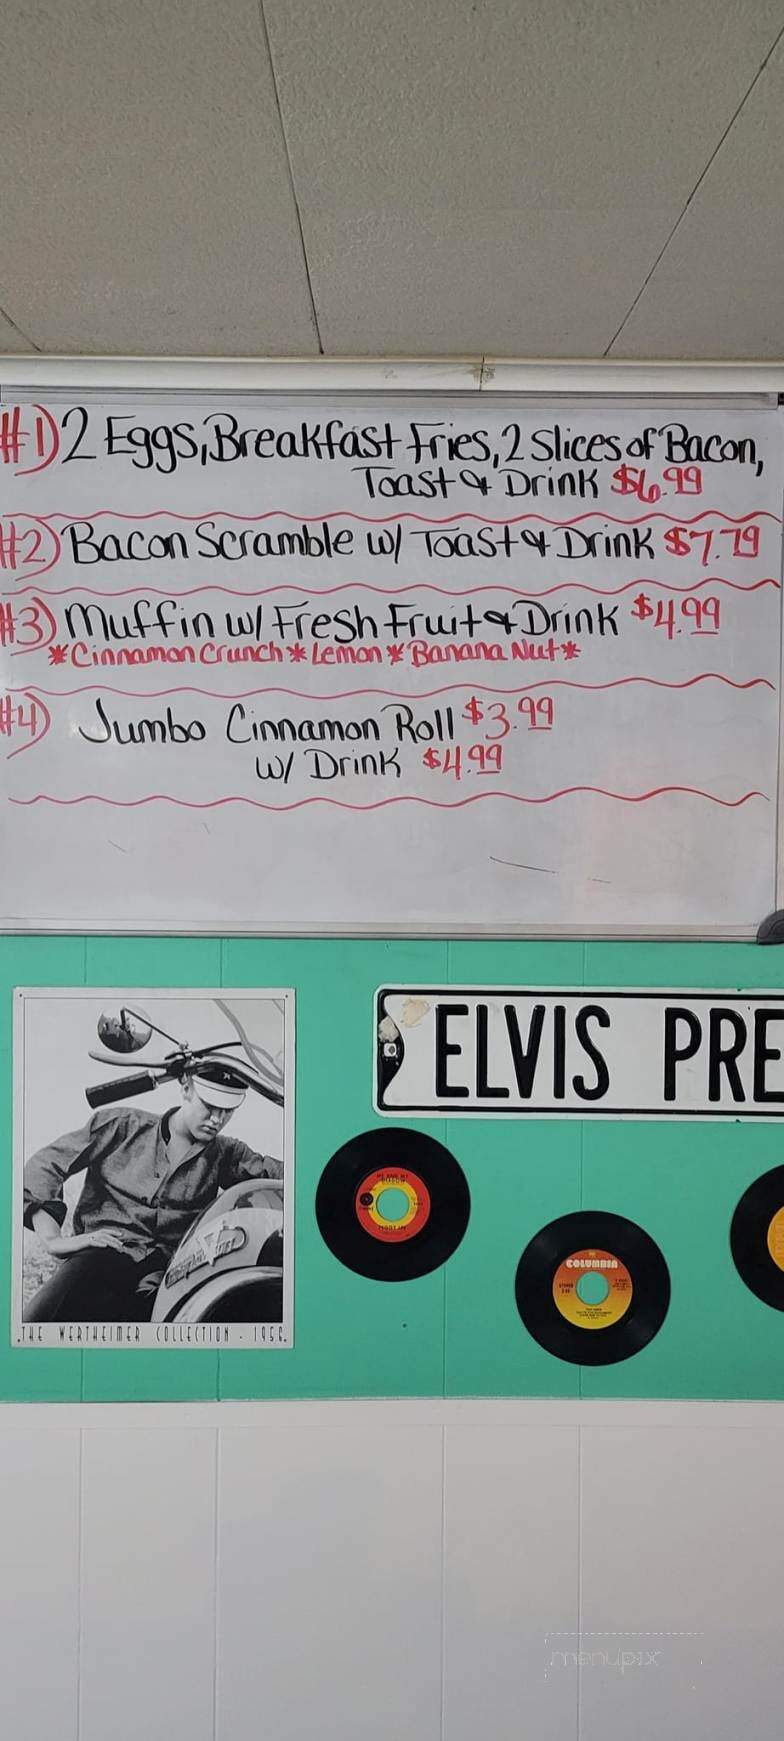 #1) 2 Eggs, Breakfast Fries, 2 Slices of Bacon,
Toast & Drink $6.99
#2) Bacon Scramble w/ Toast & Drink $7.79
#3) Muffin w/ Fresh Fruit & Drink $4.99
*Cinnamon Crunch * Lemon * Banana Nut *
#4) Jumbo Cinnamon Roll $3.99
w/ Drink $4.99
ELVIS PRE
COLUMBIA
THE WERTHEIMER COLLECTION - 1956
menupix